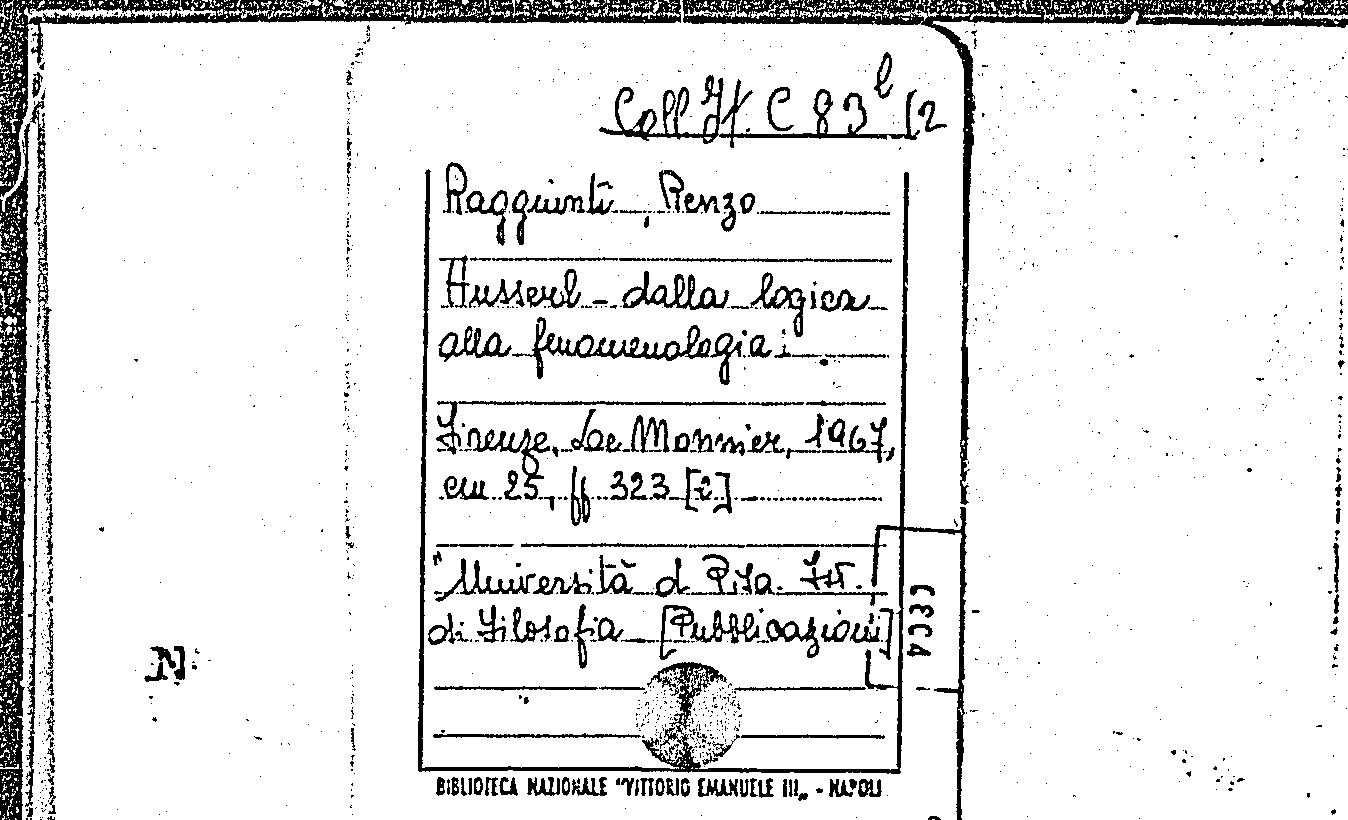 Coll. It. C 83 l (2
Raggiunti, Renzo
Husserl - dalla logica
alla fenomenologia.
Firenze, Le Monnier, 1967,
cm 25, pp 323 [2]
"Università d Pisa. Ist.
di Filosofia - [Pubblicazioni]
CECA
N
BIBLIOTECA NAZIONALE "VITTORIO EMANUELE III„ - NAPOLI